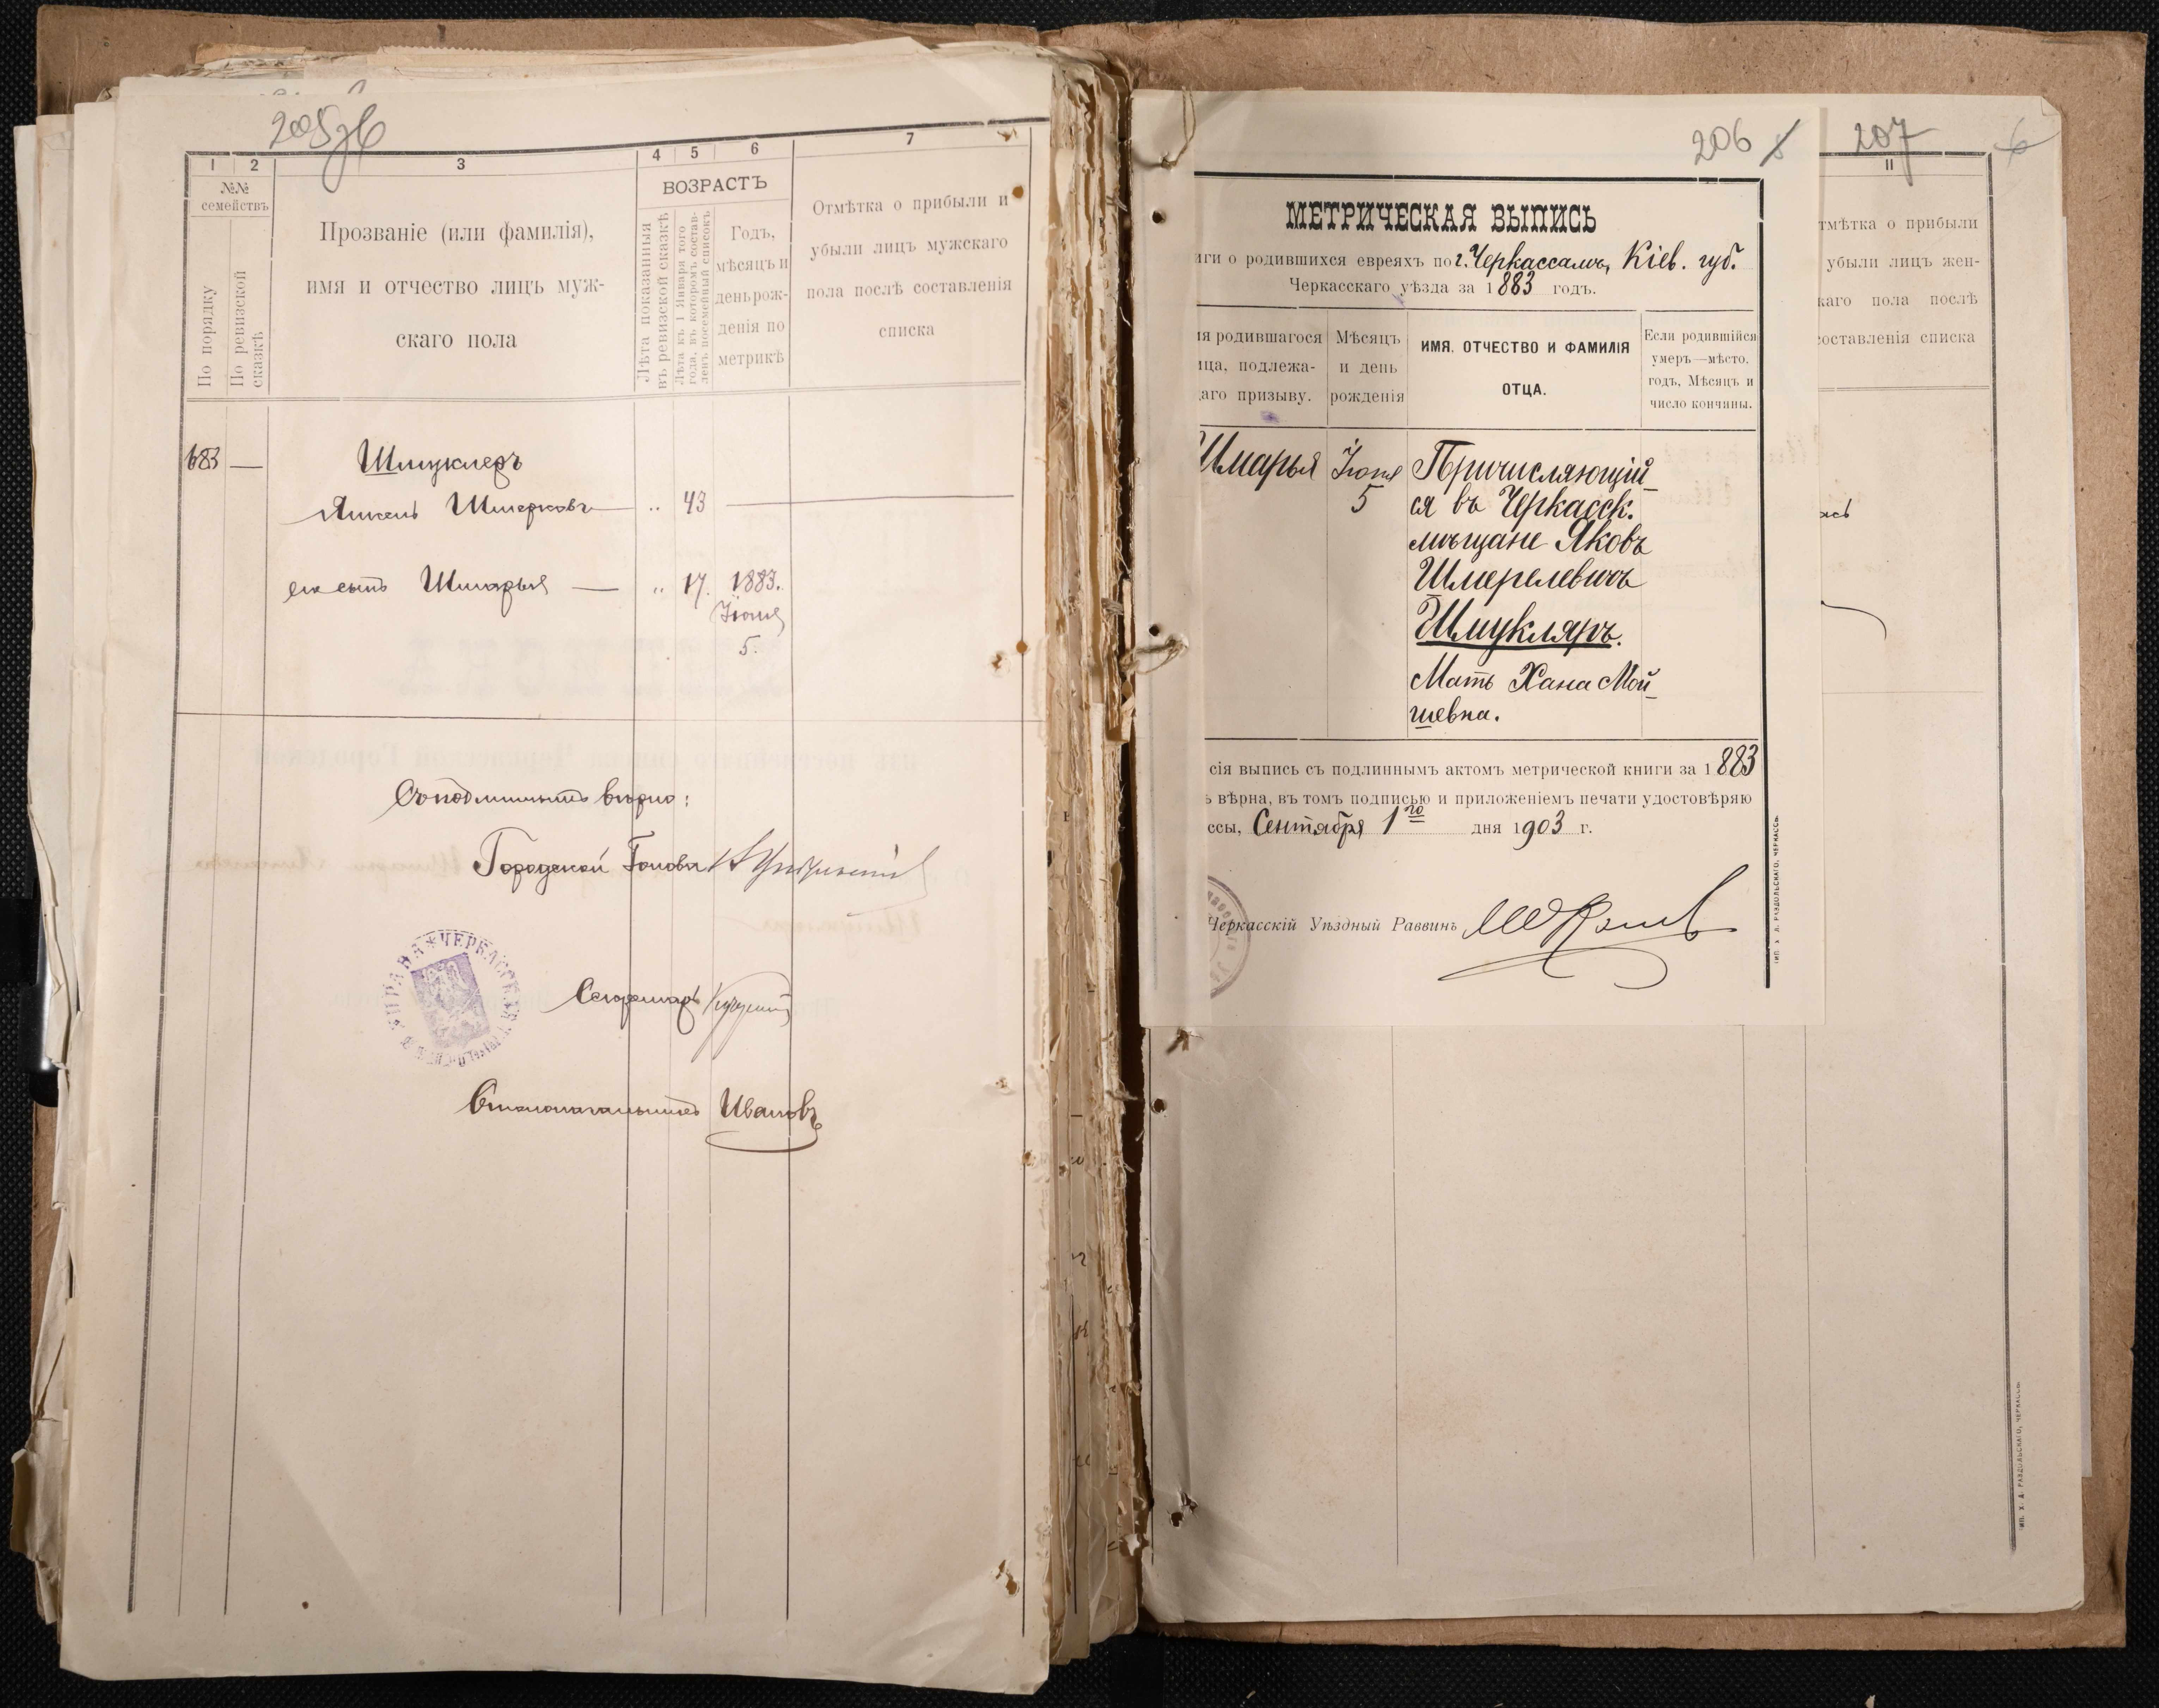 205об
1 2 3 4 5 6 7
№№
семействъ
По порядку
По ревизской
сказкѣ
Прозваніе (или фамилія),
имя и отчество лицъ муж-
скаго пола
ВОЗРАСТЪ
Лѣта показанныя
въ ревизской сказкѣ
Лѣта къ 1 Января того
года, въ которомъ состав-
ленъ посемейный списокъ
Годъ,
мѣсяцъ и
день рож-
денія по
метрикѣ
Отмѣтка о прибыли и
убыли лицъ мужскаго
пола послѣ составленія
списка
683 — Шмуклеръ
Янкель Шмерковъ — „ 43 —
его сынъ Шмарья — „ 17. 1883.
Іюня
5.
Съ подлиннымъ вѣрно:
Городской Голова
Секретарь
Столоначальникъ Ивановъ
206
МЕТРИЧЕСКАЯ ВЫПИСЬ
иги о родившихся евреяхъ по г. Черкассамъ, Кіев. губ.
Черкасскаго уѣзда за 1883 годъ.
ія родившагося
ица, подлежа-
цаго призыву.
Мѣсяцъ
и день
рожденія
ИМЯ, ОТЧЕСТВО И ФАМИЛІЯ
ОТЦА.
Если родившійся
умеръ—мѣсто,
годъ, Мѣсяцъ и
число кончины.
Шмарья Іюня Причисляющій-
5 ся въ Черкасск.
мѣщане Яковъ
Шмерелевичъ
Шмукляръ.
Мать Хана Мой-
шевна.
сія выпись съ подлиннымъ актомъ метрической книги за 1883
ъ вѣрна, въ томъ подписью и приложеніемъ печати удостовѣряю
ссы, Сентября 1го дня 1903 г.
Черкасскій Уѣздный Раввинъ
ТИП. Х. Д. РАЗДОЛЬСКАГО, ЧЕРКАССЫ.
207 6
11
тмѣтка о прибыли
убыли лицъ жен-
каго пола послѣ
составленія списка
ИП. Х. Д. РАЗДОЛЬСКАГО, ЧЕРКАССЫ.